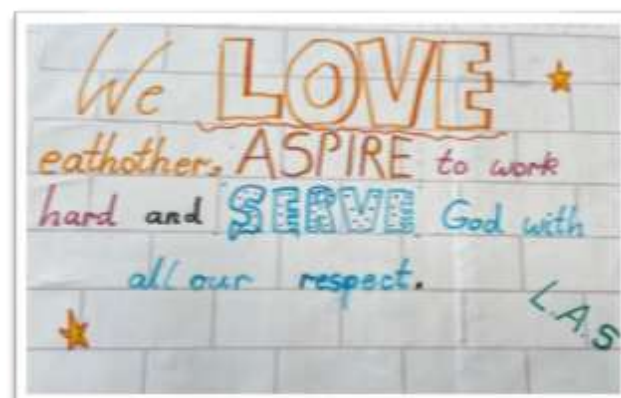 We LOVE
eathother, ASPIRE to work
hard and SERVE God with
all our respect.
L.A.S